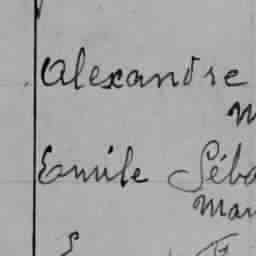 Alexandre
Emile Séba
Mar